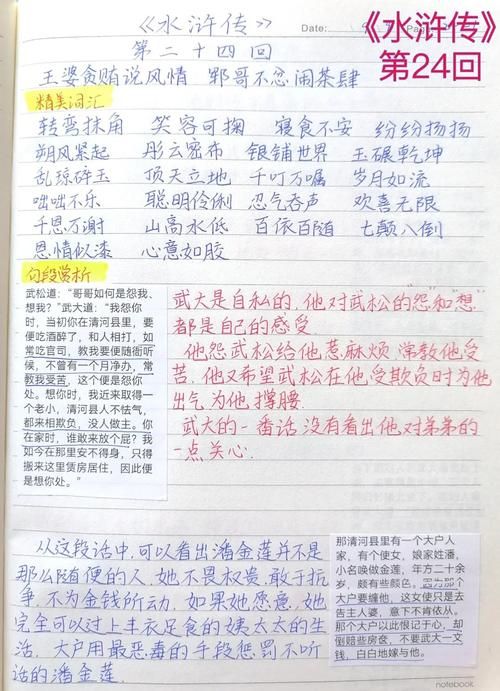 《水浒传》
Date:
Page:
《水浒传》
第24回
第二十四回
王婆贪贿说风情 郓哥不忿闹茶肆
精美词汇
转弯抹角 笑容可掬 寝食不安 纷纷扬扬
朔风紧起 彤云密布 银铺世界 玉碾乾坤
乱琼碎玉 顶天立地 千叮万嘱 岁月如流
咄咄不乐 聪明伶俐 忍气吞声 欢喜无限
千恩万谢 山高水低 百依百随 七颠八倒
恩情似漆 心意如胶
句段赏析
武松道：“哥哥如何是怨我、
想我？”武大道：“我怨你
时，当初你在清河县里，要
便吃酒醉了，和人相打，如
常吃官司，教我要便随衙听
候，不曾有一个月净办，常
教我受苦，这个便是怨你
处。想你时，我近来取得一
个老小，清河县人不怯气，
都来相欺负，没人做主。你
在家时，谁敢来放个屁？我
如今在那里安不得身，只得
搬来这里赁房居住，因此便
是想你处。”
武大是自私的，他对武松的“怨和“想”
都是自己的感受
他怨武松给他惹麻烦，常教他受
苦，他又希望武松在他受欺负时为他
出气为他撑腰
武大的一番话没有看出他对弟弟的
一点关心。
从这段话中，可以看出潘金莲并不是
那么随便的人，她不畏权贵，敢于抗
争，不为金钱所动，如果她愿意，她
完全可以过上丰衣足食的姨太太的生
活，大户用最恶毒的手段惩罚不听
话的潘金莲。
那清河县里有一个大户人
家，有个使女，娘家姓潘，
小名唤做金莲，年方二十余
岁，颇有些颜色。因为那个
大户要缠他，这女使只是去
告主人婆，意下不肯依从。
那个大户以此恨记于心，却
倒赔些房奁，不要武大一文
钱，白白地嫁与他。
notebook